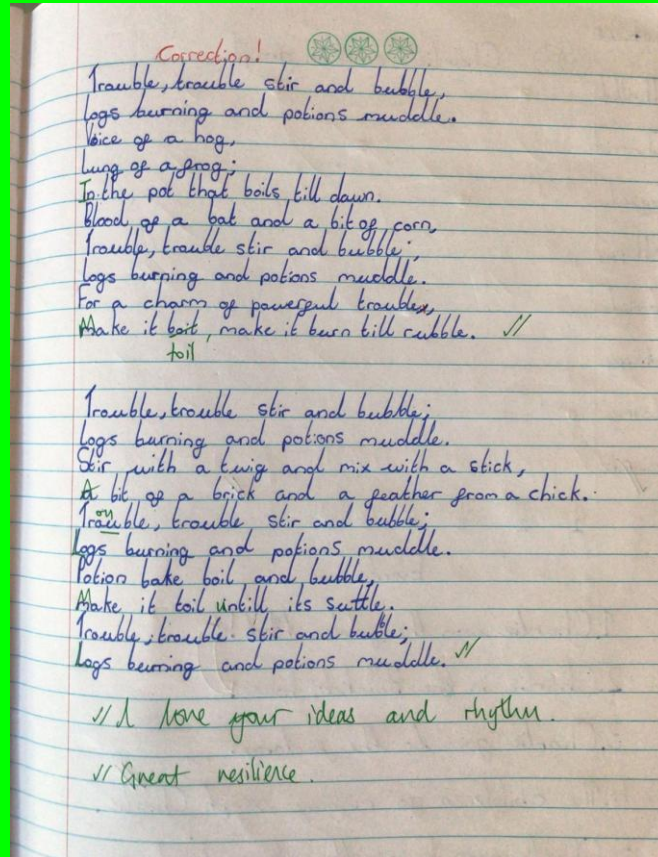 Correction!
Trouble, trouble stir and bubble,
Logs burning and potions muddle.
Voice of a hog,
Lung of a frog;
In the pot that boils till dawn.
Blood of a bat and a bit of corn,
Trouble, trouble stir and bubble;
Logs burning and potions muddle.
For a charm of powerful trouble,
Make it boil, make it burn till rubble.
toil
Trouble, trouble stir and bubble;
Logs burning and potions muddle.
Stir with a twig and mix with a stick,
A bit of a brick and a feather from a chick.
ou
Trouble, trouble stir and bubble;
Logs burning and potions muddle.
Potion bake boil and bubble,
Make it toil untill its suttle.
Trouble, trouble stir and bubble;
Logs burning and potions muddle.
I love your ideas and rhythm.
Great resilience.